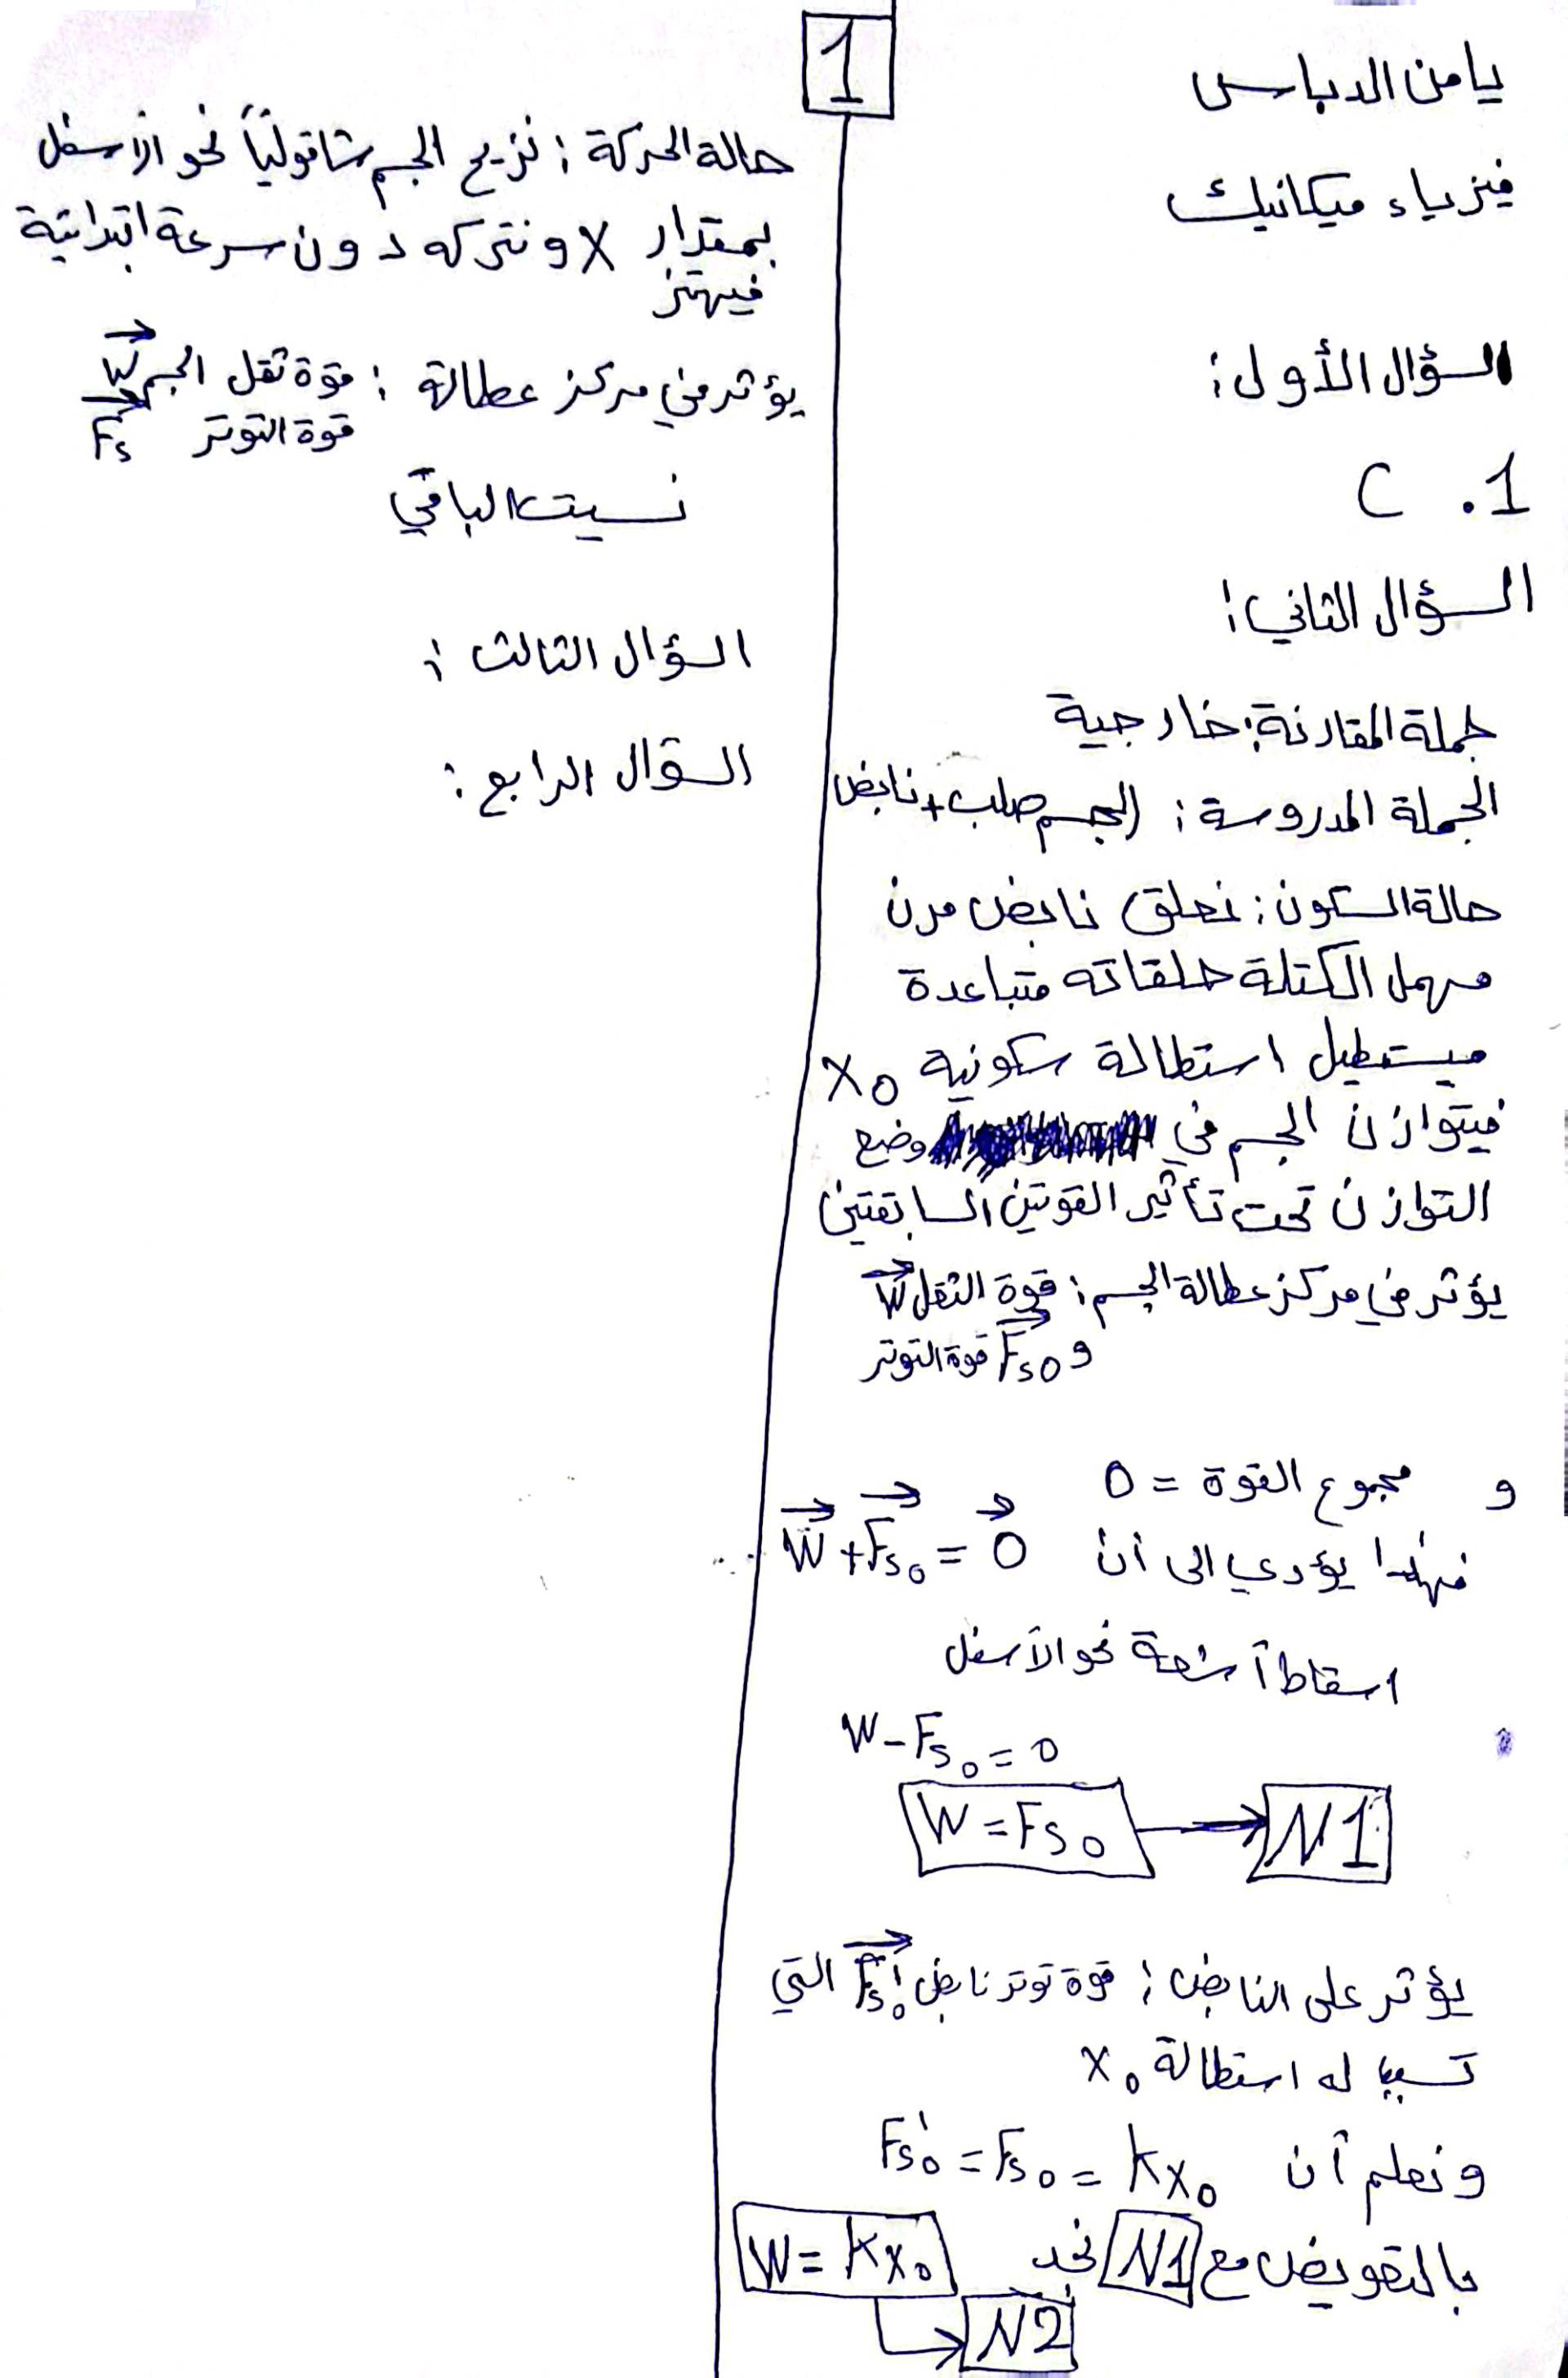 1
يامن الدباس
فيزياء ميكانيك
السؤال الأول:
1. C
السؤال الثاني:
جملة المقارنة: خارجية
الجملة المدروسة: (الجسم صلب + نابض
حالة السكون: نعلق نابض مرن
مهمل الكتلة حلقاته متباعدة
فيستطيل استطالة سكونية X0
فيتوازن الجسم في وضع
التوازن تحت تأثير القوتين السابقتين
يؤثر في مركز عطالة الجسم: قوة الثقل W
و Fs0 قوة التوتر
و مجموع القوة = 0
فهذا يؤدي الى ان W + Fs0 = 0
اسقاط أشعة نحو الأسفل
W - Fs0 = 0
W = Fs0 → N1
يؤثر على النابض: قوة توتر نابض F's0 التي
تسبب له استطالة X0
و نعلم أن Fs'0 = Fs0 = kx0
بالتعويض مع N1 نجد W = kx0
N2
حالة الحركة: نزيح الجسم شاقولياً نحو الأسفل
بمقدار X و نتركه دون سرعة ابتدائية
فيهتز
يؤثر في مركز عطالة: قوة ثقل الجسم W
قوة التوتر Fs
نسيت الباقي
السؤال الثالث:
السؤال الرابع: